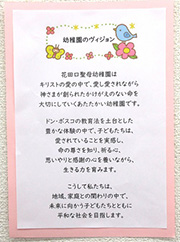 幼稚園のヴィジョン
花田口聖母幼稚園は
キリストの愛の中で、愛し愛されながら
神さまが創られたかけがえのない命を
大切にしていくあたたかい幼稚園です。
ドン・ボスコの教育法を土台とした
豊かな体験の中で、子どもたちは、
愛されていることを実感し、
命の尊さを知り、祈る心、
思いやりと感謝の心を養いながら、
生きる力を育みます。
こうして私たちは、
地域、家庭との関わりの中で、
未来に向かう子どもたちとともに
平和な社会を目指します。